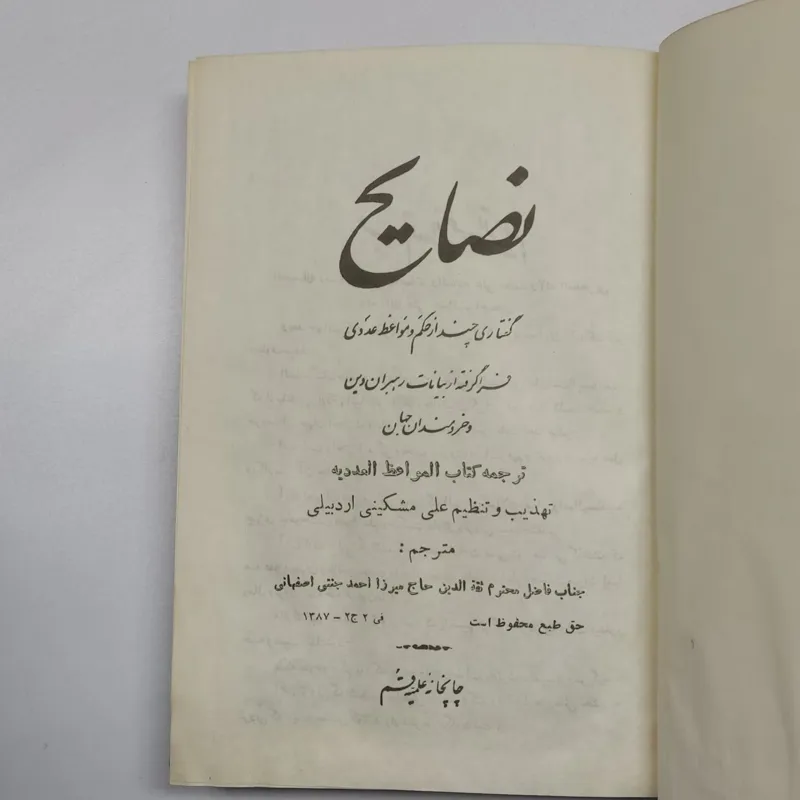 نصایح
گفتاری چند از حکم و مواعظ عددی
فرا گرفته از بیانات رهبران دین
و خردمندان جهان
ترجمه کتاب المواعظ العددیه
تهذیب و تنظیم علی مشکینی اردبیلی
مترجم :
جناب فاضل محترم ثقة الدین حاج میرزا احمد جنتی اصفهانی
حق طبع محفوظ است فی ۲ ج۲ - ۱۳۸۷
چاپخانه علمیه قم